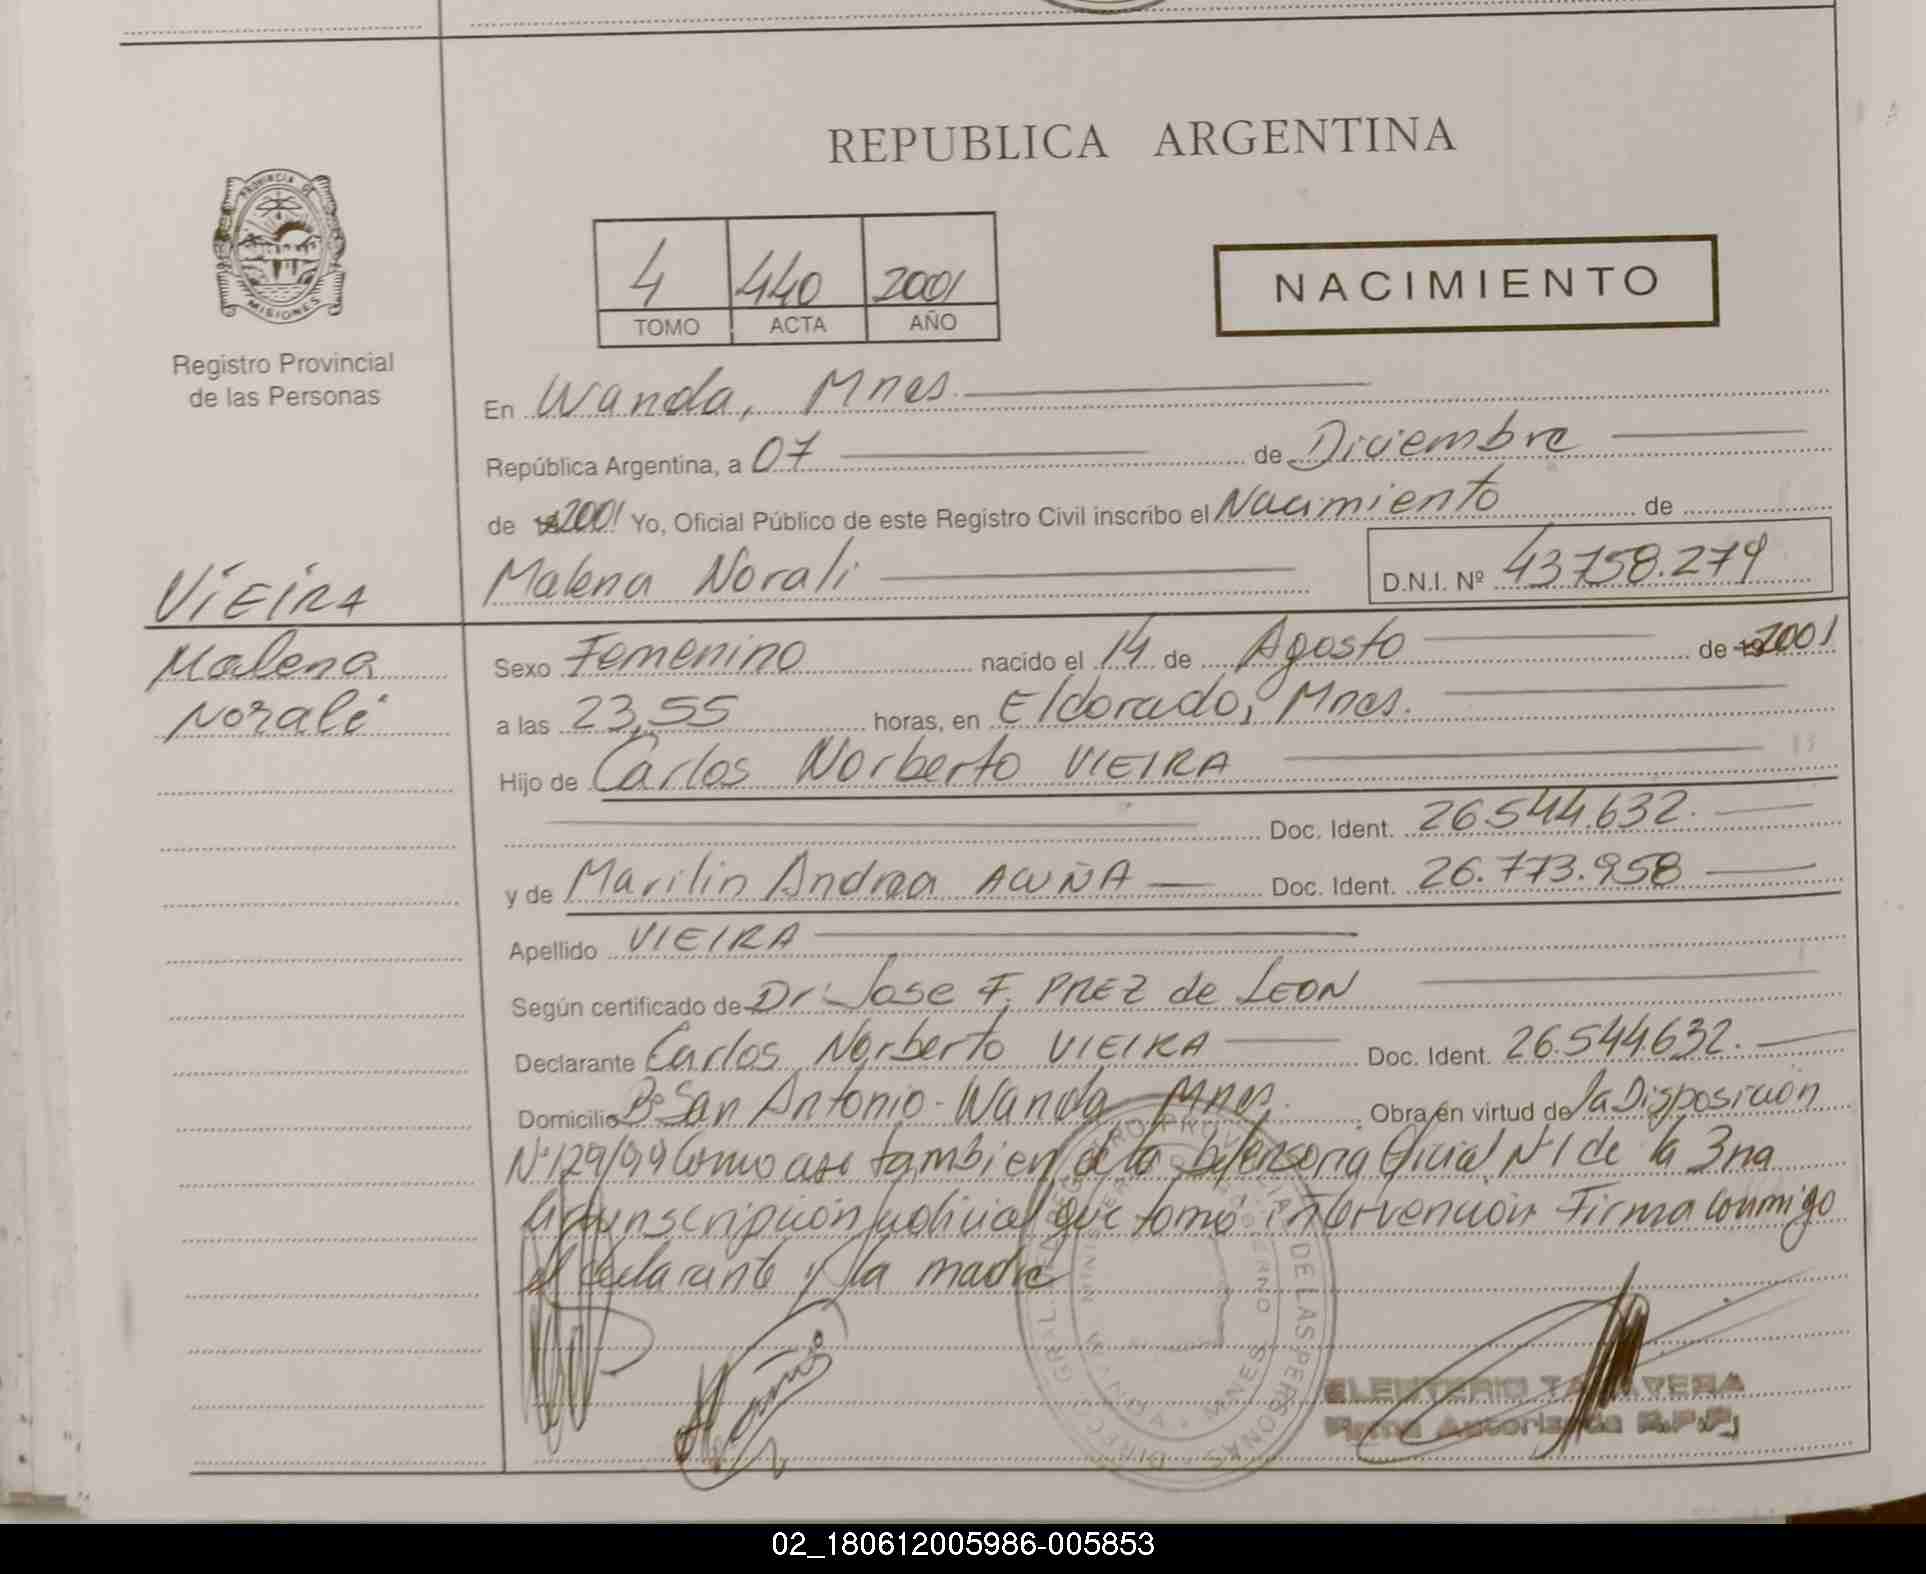 REPUBLICA ARGENTINA
PROVINCIA DE
MISIONES
Registro Provincial
de las Personas
4 440 2001
TOMO ACTA AÑO
NACIMIENTO
En Wanda, Mnes.
República Argentina, a 07 de Diciembre
de 2001 Yo, Oficial Público de este Registro Civil inscribo el Nacimiento de
Malena Norali D.N.I. Nº 43758.279
VIEIRA
Malena
Norali
Sexo Femenino nacido el 14 de Agosto de 2001
a las 23,55 horas, en Eldorado, Mnes.
Hijo de Carlos Norberto VIEIRA
Doc. Ident. 26.544.632.
y de Marilin Andrea ACUÑA Doc. Ident. 26.773.958
Apellido VIEIRA
Según certificado de Dr. Jose F. PREZ de LEON
Declarante Carlos Norberto VIEIRA Doc. Ident. 26.544632.
Domicilio Bº San Antonio - Wanda Mnes. Obra en virtud de la Disposición
Nº 129/99 Como asi tambien de la Defensoria Oficial Nº 1 de la 3na
Circunscripción Judicial que tomó intervención Firma conmigo
el declarante y la madre
ELEUTERIO TALAVERA
Firma Autorizada R.P.P.
02_180612005986-005853